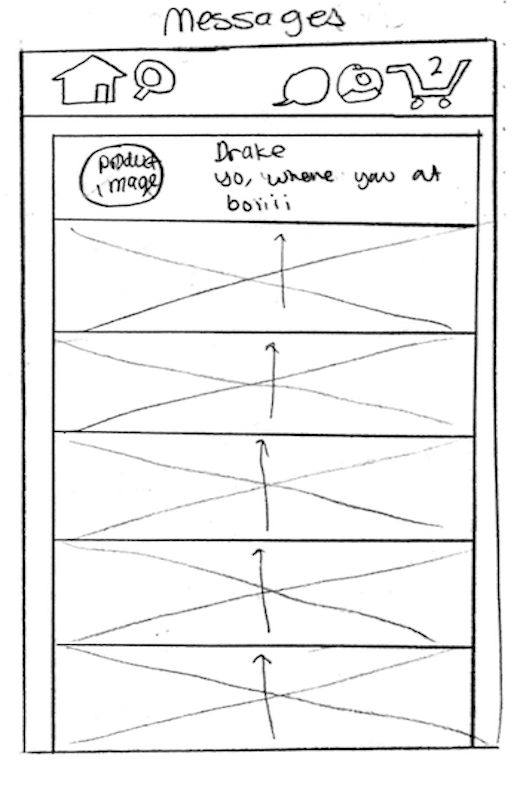 Messages
2
product
image
Drake
yo, where you at
boiiii